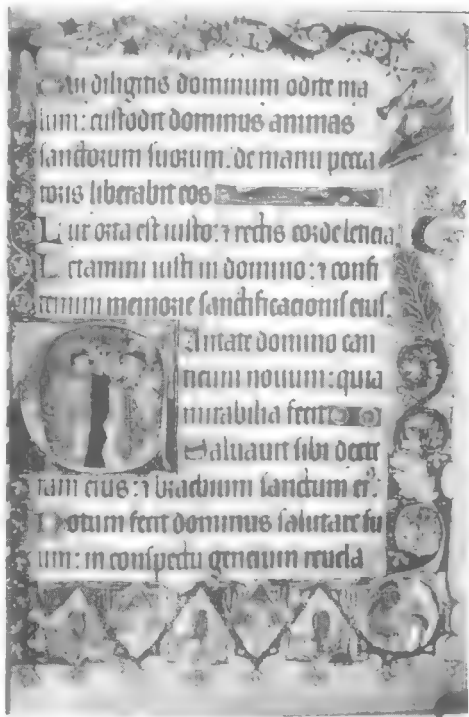 Qui diligitis dominum odite ma
lum: custodit dominus animas
sanctorum suorum. de manu pecca
toris liberabit eos
Lux orta est iusto: ⁊ rectis corde leticia.
Letamini iusti in domino: ⁊ confi
temini memorie sanctificacionis eius.
Cantate domino can
ticum nouum: quia
mirabilia fecit
Saluauit sibi dexte
ram eius: ⁊ brachium sanctum ei⁹.
Notum fecit dominus salutare su
um: in conspectu gencium reuela